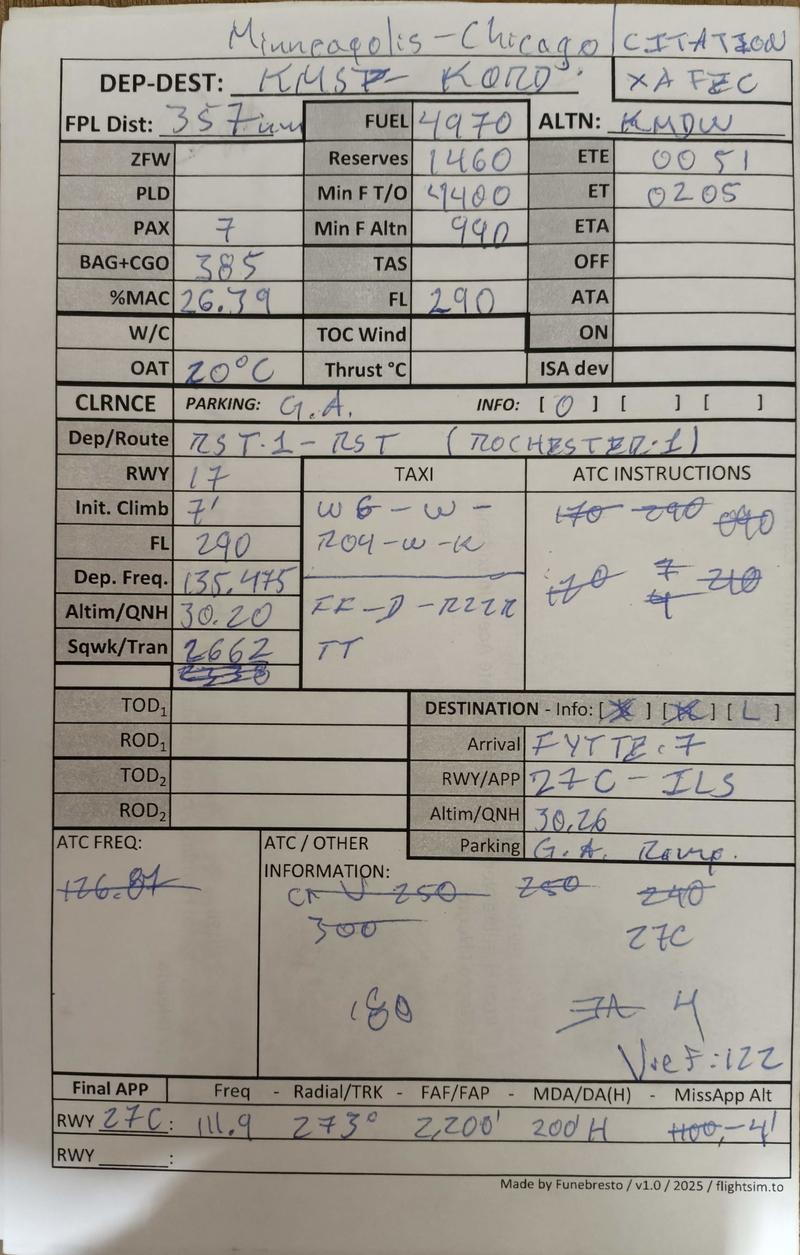 Minneapolis - Chicago CITATION
DEP-DEST: KMSP - KORD XAFEC
FPL Dist: 357nm FUEL 4970 ALTN: KMDW
ZFW Reserves 1460 ETE 00 51
PLD Min F T/O 4400 ET 0205
PAX 7 Min F Altn 990 ETA
BAG+CGO 385 TAS OFF
%MAC 26.39 FL 290 ATA
W/C TOC Wind ON
OAT 20°C Thrust °C ISA dev
CLRNCE PARKING: G.A. INFO: [ O ] [ ] [ ]
Dep/Route RST.1 - RST (ROCHESTER.1)
RWY 17 TAXI ATC INSTRUCTIONS
Init. Climb 7' W6 - W - 170 290 090
FL 290 R04 - W - K
Dep. Freq. 135.475 120 7 210
4
Altim/QNH 30.20 FF - D - R22R
Sqwk/Tran 2662 TT
TOD1 DESTINATION - Info: [ ] [ K ] [ L ]
ROD1 Arrival FYTTE.7
TOD2 RWY/APP 27C - ILS
ROD2 Altim/QNH 30.26
Parking G.A. Ramp.
ATC FREQ: ATC / OTHER
INFORMATION:
126.87 250 250 240
300 27C
180 4
Vref: 122
Final APP Freq - Radial/TRK - FAF/FAP - MDA/DA(H) - MissApp Alt
RWY 27C: 111.9 273° 2,200' 200'H 1100, - 4'
RWY ____:
Made by Funebresto / v1.0 / 2025 / flightsim.to